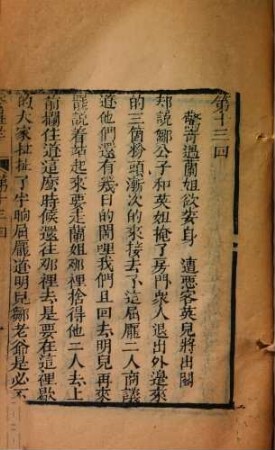 第十三回
驚奇遇蘭姐欲安身　遭惡客英兒將出閣
却說鄒公子和英姐掩了房門衆人退出外邊來
的三個粉頭漸次的來接去了這屈龐二人商議
道他們還有幾日的鬧哩我們且回去明兒再來
罷說着站起來要走蘭姐那裡捨得他二人去上
前攔住道這麽時候還往那裡去是要在這裡歇
的大家扯扯了半晌屈龐道明兒鄒老爺是必不
第十三回